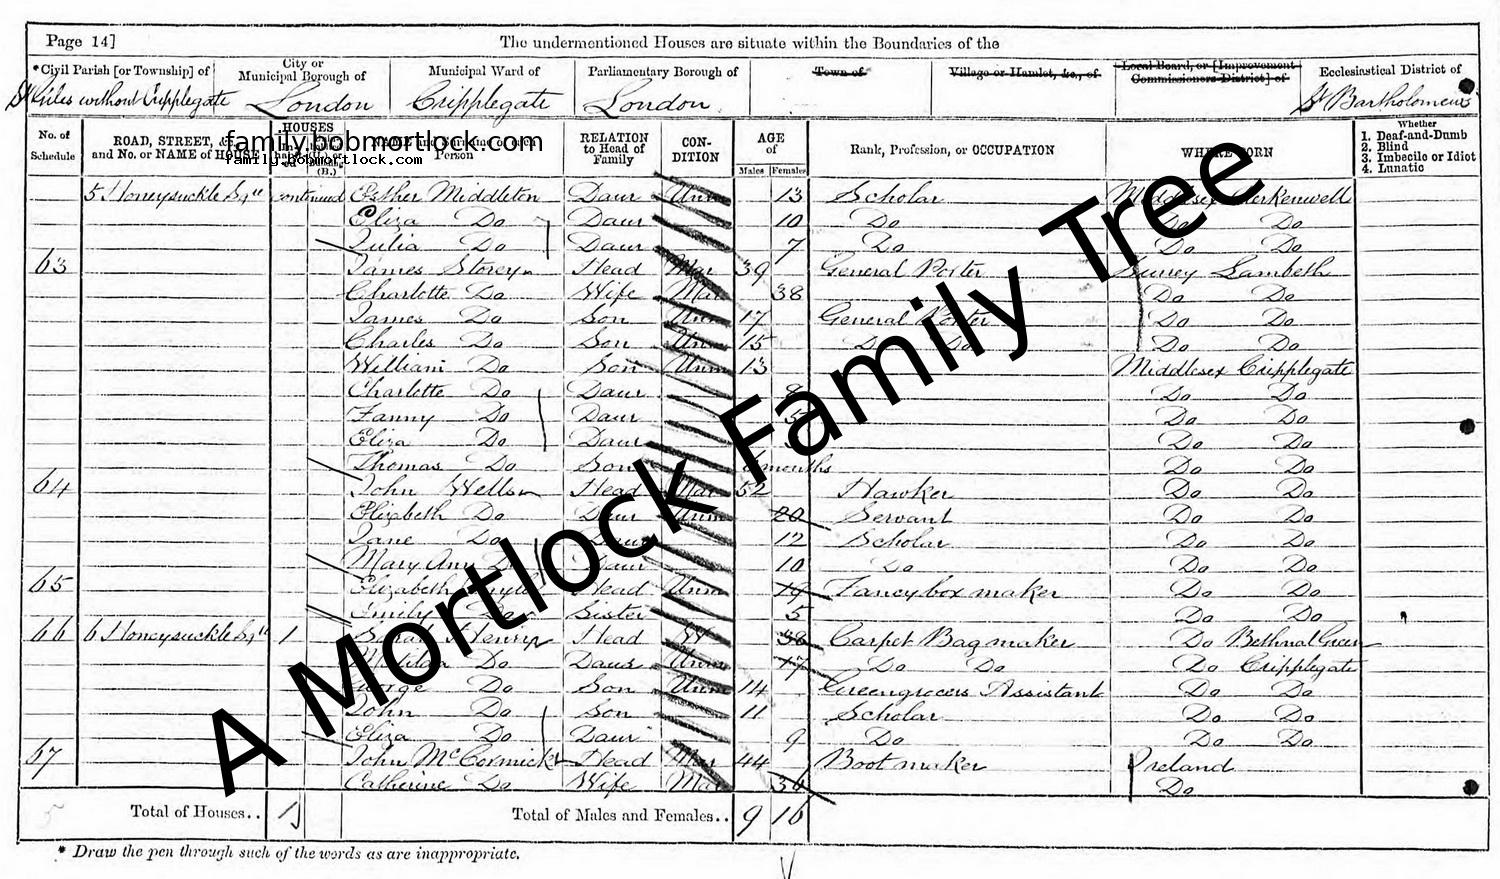 Page 14]
The undermentioned Houses are situate within the Boundaries of the
*Civil Parish [or Township] of
City or Municipal Borough of
Municipal Ward of
Parliamentary Borough of
Town of
Village or Hamlet, &c., of
Local Board, or [Improvement Commissioners District] of
Ecclesiastical District of
St Giles without Cripplegate London Cripplegate London St Bartholomews
No. of Schedule
ROAD, STREET, &c., and No. or NAME of HOUSE
HOUSES
(B.)
family.bobmortlock.com
family.bobmortlock.com
NAME and Surname of each Person
RELATION to Head of Family
CONDITION
AGE of
Males Females
Rank, Profession, or OCCUPATION
WHERE BORN
Whether
1. Deaf-and-Dumb
2. Blind
3. Imbecile or Idiot
4. Lunatic
5 Honeysuckle Sqre continued Esther Middleton Daur Unm 13 Scholar Middlesex Clerkenwell
Eliza Do Daur 10 Do Do Do
Julia Do Daur 7 Do Do Do
63 James Storey Head Mar 39 General Porter Surrey Lambeth
Charlotte Do Wife Mar 38 Do Do
James Do Son Unm 17 General Porter Do Do
Charles Do Son Unm 15 Do Do Do Do
William Do Son Unm 13 Middlesex Cripplegate
Charlotte Do Daur 9 Do Do
Fanny Do Daur 5 Do Do
Eliza Do Daur Do Do
Thomas Do Son months Do Do
64 John Wells Head Mar 52 Hawker Do Do
Elizabeth Do Daur Unm 20 Servant Do Do
Jane Do Daur 12 Scholar Do Do
Mary Ann Do Daur 10 Do Do Do
65 Elizabeth Head Unm 19 Fancy box maker Do Do
Emily Do Sister 5 Do Do
66 6 Honeysuckle Sqre 1 Sarah Henry Head W 38 Carpet Bag maker Do Bethnal Green
Matilda Do Daur Unm 17 Do Do Do Cripplegate
George Do Son Unm 14 Greengrocers Assistant Do Do
John Do Son 11 Scholar Do Do
Eliza Do Daur 9 Do Do Do
67 John McCormick Head Mar 44 Boot maker Ireland
Catherine Do Wife Mar 34 Do
Total of Houses.. 1
Total of Males and Females.. 9 16
* Draw the pen through such of the words as are inappropriate.
A Mortlock Family Tree